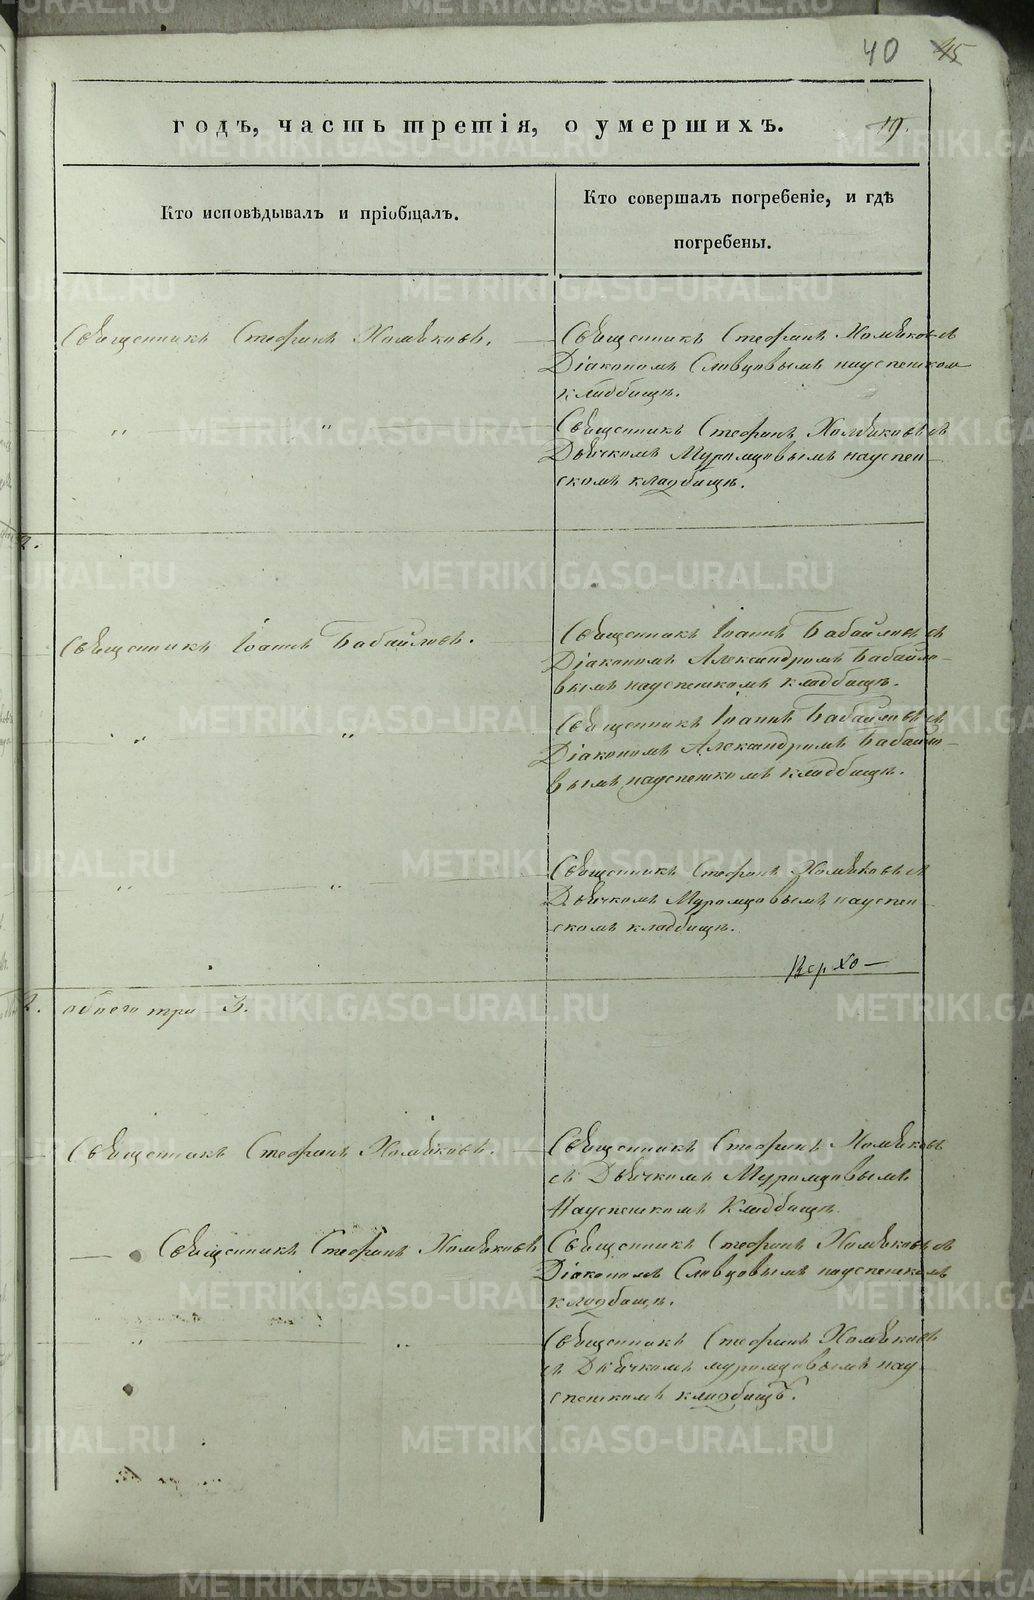 40 45
годъ, часть третія, о умершихъ. 19.
Кто исповѣдывалъ и пріобщалъ.
Кто совершалъ погребеніе, и гдѣ
погребены.
Священникъ Стефанъ Хомяковъ.
Священникъ Стефанъ Хомяковъ съ
Діакономъ Словцовымъ науспенскомъ
кладбищѣ.
„ „
Священникъ Стефанъ Хомяковъ съ
Дьячкомъ Муромцовымъ науспен-
скомъ кладбищѣ.
2.
Священникъ Іоаннъ Бабайловъ.
Священникъ Іоаннъ Бабайловъ съ
Діакономъ Александромъ Бабайло-
вымъ науспенскомъ кладбищѣ.
„ „
Священникъ Іоаннъ Бабайловъ съ
Діакономъ Александромъ Бабайло-
вымъ науспенскомъ кладбищѣ.
„ „
Священникъ Стефанъ Хомяковъ съ
Дьячкомъ Муромцовымъ науспен-
скомъ кладбищѣ.
Верхо-
2. обоего три 3.
Священникъ Стефанъ Хомяковъ.
Священникъ Стефанъ Хомяковъ
съ Дьячкомъ Муромцовымъ
Науспенскомъ Кладбищѣ
Священникъ Стефанъ Хомяковъ
Священникъ Стефанъ Хомяковъ съ
Діакономъ Словцовымъ науспенскомъ
кладбищѣ.
„ „
Священникъ Стефанъ Хомяковъ
съ Дьячкомъ Муромцовымъ нау-
спенскомъ кладбищѣ.
METRIKI.GASO-URAL.RU